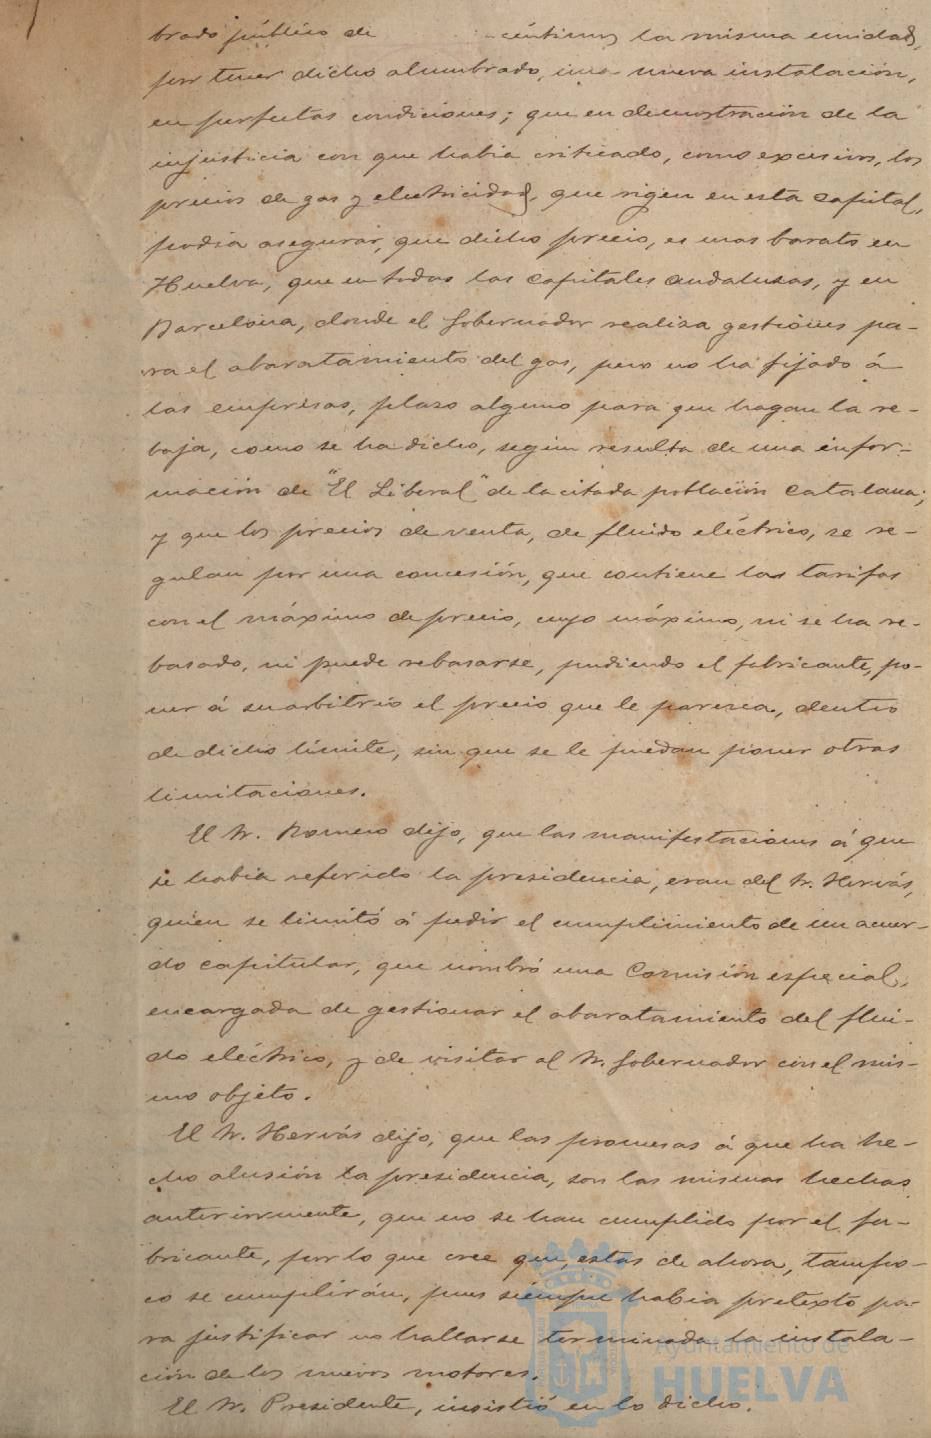 brado público de céntimos la misma unidad,
por tener dicho alumbrado, una nueva instalación,
en perfectas condiciones; que en demostración de la
injusticia con que habia criticado, como excesivos, los
precios de gas y electricidad, que rigen en esta capital,
podia asegurar, que dicho precio, es mas barato en
Huelva, que en todas las capitales andaluzas, y en
Barcelona, donde el Gobernador realiza gestiones pa-
ra el abaratamiento del gas, pero no ha fijado á
las empresas, plazo alguno para que hagan la re-
baja, como se ha dicho, según resulta de una infor-
mación de "El Liberal" de la citada población catalana;
y que los precios de venta, de fluido eléctrico, se re-
gulan por una concesión, que contiene las tarifas
con el máximo de precio, cuyo máximo, ni se ha re-
basado, ni puede rebasarse, pudiendo el fabricante, po-
ner á su arbitrio el precio que le parezca, dentro
de dicho límite, sin que se le puedan poner otras
limitaciones.
El Sr. Romero dijo, que las manifestaciones á que
se habia referido la presidencia, eran del Sr. Hervás,
quien se limitó á pedir el cumplimiento de un acuer-
do capitular, que nombró una Comisión especial,
encargada de gestionar el abaratamiento del flui-
do eléctrico, y de visitar al Sr. Gobernador con el mis-
mo objeto.
El Sr. Hervás dijo, que las promesas á que ha he-
cho alusión la presidencia, son las mismas hechas
anteriormente, que no se han cumplido por el fa-
bricante, por lo que cree que, estas de ahora, tampo-
co se cumplirán, pues siempre habia pretexto pa-
ra justificar no hallarse terminada la instala-
ción de los nuevos motores.
El Sr. Presidente, insistió en lo dicho.
Ayuntamiento de
HUELVA